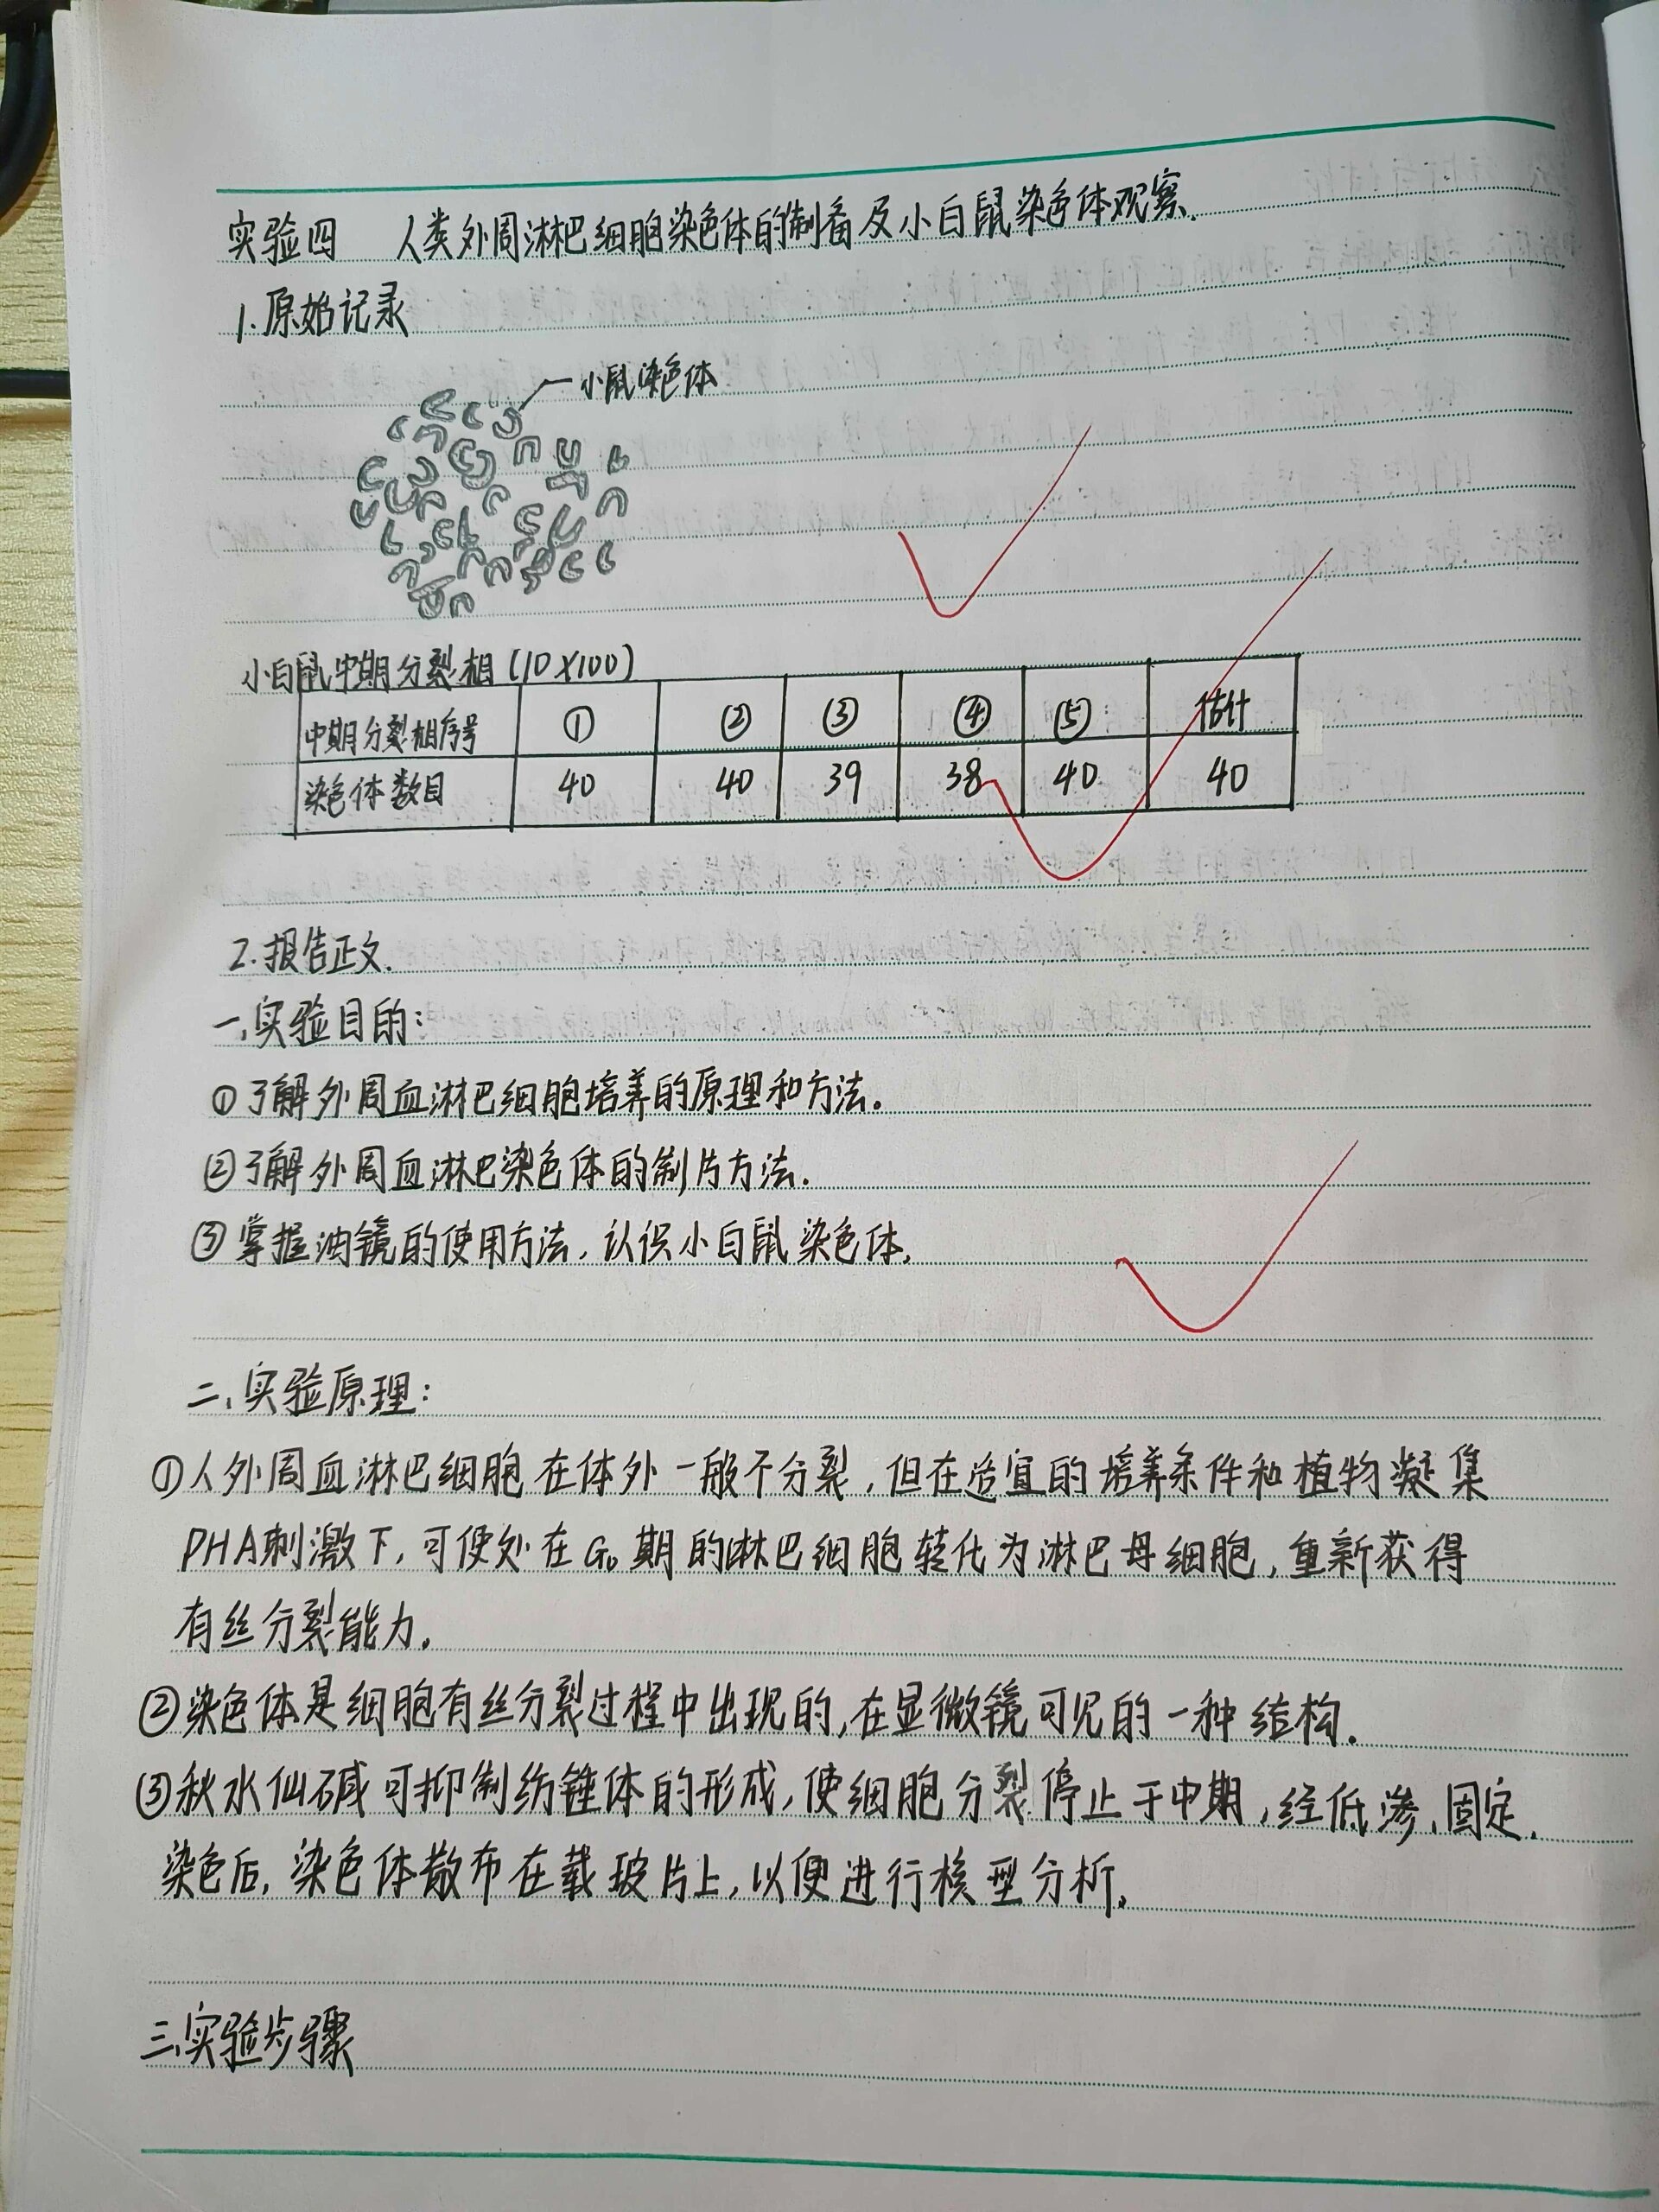 实验四 人类外周淋巴细胞染色体的制备及小白鼠染色体观察.
1.原始记录
小鼠染色体
小白鼠中期分裂相(10×100)
中期分裂相序号 ① ② ③ ④ ⑤ 估计
染色体数目 40 40 39 38 40 40
2.报告正文.
一.实验目的:
①了解外周血淋巴细胞培养的原理和方法。
②了解外周血淋巴染色体的制片方法.
③掌握油镜的使用方法,认识小白鼠染色体.
二.实验原理:
①人外周血淋巴细胞在体外一般不分裂,但在适宜的培养条件和植物凝集
PHA刺激下,可使处在G₀期的淋巴细胞转化为淋巴母细胞,重新获得
有丝分裂能力。
②染色体是细胞有丝分裂过程中出现的,在显微镜可见的一种结构.
③秋水仙碱可抑制纺锤体的形成,使细胞分裂停止于中期,经低渗、固定、
染色后,染色体散布在载玻片上,以便进行核型分析.
三.实验步骤